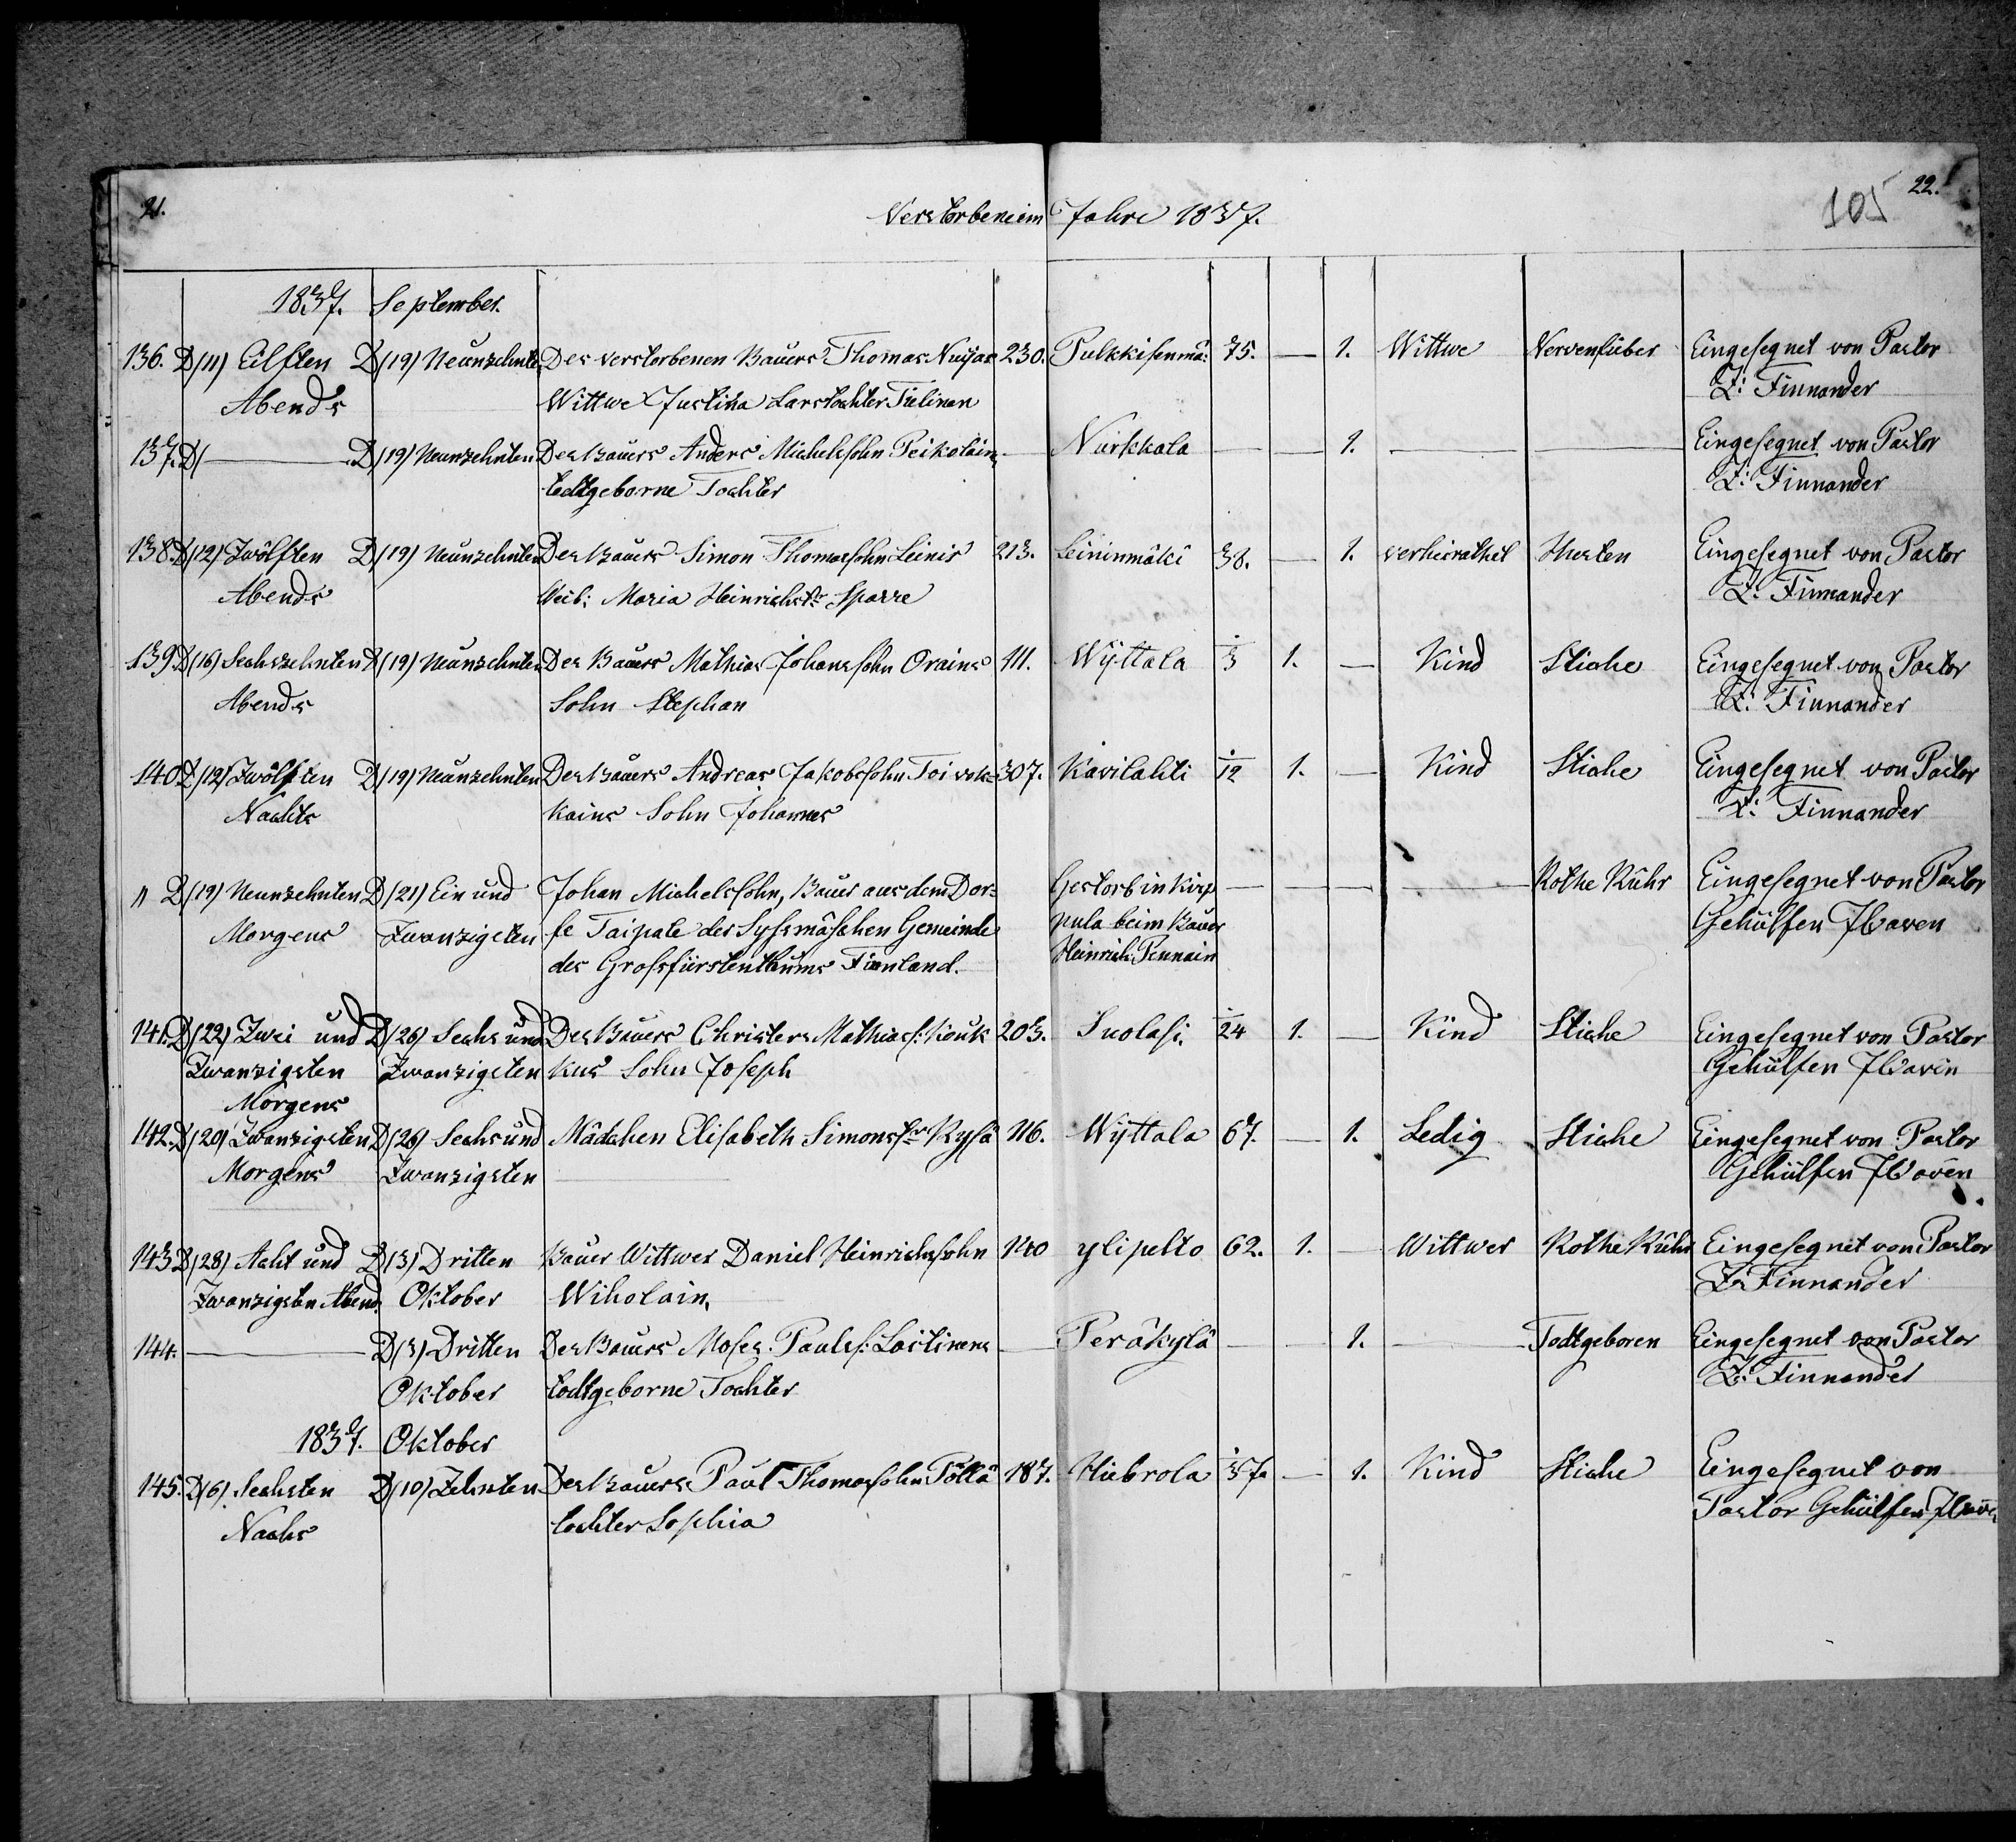 21.
Verstorbene im Jahre 1837.
105
22.
1837. September.
136. D(11) Eilften D(19) Neunzehnten Des verstorbenen Bauers Thomas Nuijas 230. Pulkkisenmä: 75. — 1. Wittwe Nervenfieber Eingesegnet von Pastor
Abends Wittwe Justina Larstochter Tielinen Z: Finnander
137. D( — D(19) Neunzehnten Des Bauers Anders Michelssohn Peikolain, — Nurkkala — — 1. — — Eingesegnet von Pastor
todtgeborne Tochter Z: Finnander
138. D(12) Zwölften D(19) Neunzehnten Des Bauers Simon Thomassohn Leinis 213. Leininmäki 38. — 1. verheirathet Husten Eingesegnet von Pastor
Abends Weib: Maria Heinrichstr Sparre Z: Finnander
139 D(16) Sechszehnten D(19) Neunzehnten Des Bauers Mathias Johanssohn Orains 111. Wÿttala 1/3 1. — Kind Stiche Eingesegnet von Pastor
Abends Sohn Stephan Z: Finnander
140. D(12) Zwölften D(19) Neunzehnten Des Bauers Andreas Jakobssohn Toivok- 307. Kavilahti 1/12 1. — Kind Stiche Eingesegnet von Pastor
Nachts kains Sohn Johannes Z: Finnander
" D(19) Neunzehnten D(21) Ein und Johan Michelssohn, Bauer aus dem Dor= Gestorb in Kirp — — — — Rothe Ruhr Eingesegnet von Pastor
Morgens Zwanzigsten fe Taipale der Syssmäschen Gemeinde pula beim Bauer Gehülfen
des Grossfürstenthums Finnland. Heinrich Pennain
141. D(22) Zwei und D(26) Sechs und Des Bauers Christers Mathiass: Kouk 203. Suolasi. 1/24 1. — Kind Stiche Eingesegnet von Pastor
Zwanzigsten Zwanzigsten kus Sohn Joseph Gehülfen
Morgens
142. D(20) Zwanzigsten D(26) Sechs und Mädchen Elisabeth Simonstr Rysä 116. Wÿttala 67. — 1. Ledig Stiche Eingesegnet von Pastor
Morgens Zwanzigsten Gehülfen
143 D(28) Acht und D(3) Dritten Bauer Wittwer Daniel Heinrichssohn 140 ylipelto 62. 1. — Wittwer Rothe Ruhr Eingesegnet von Pastor
Zwanzigsten Abend. Oktober Wiholain, Z: Finnander
144. — D(3) Dritten Des Bauers Moses Pauls: Loitinens — Peräkylä — — 1. — Todtgeboren Eingesegnet von Pastor
Oktober todtgeborne Tochter Z: Finnander
1837. Oktober
145. D(6) Sechsten D(10) Zehnten Des Bauers Paul Thomassohn Pöllä 187. Hiebrola — 1. Kind Stiche Eingesegnet von
Nachs tochter Sophia Pastor Gehülfen